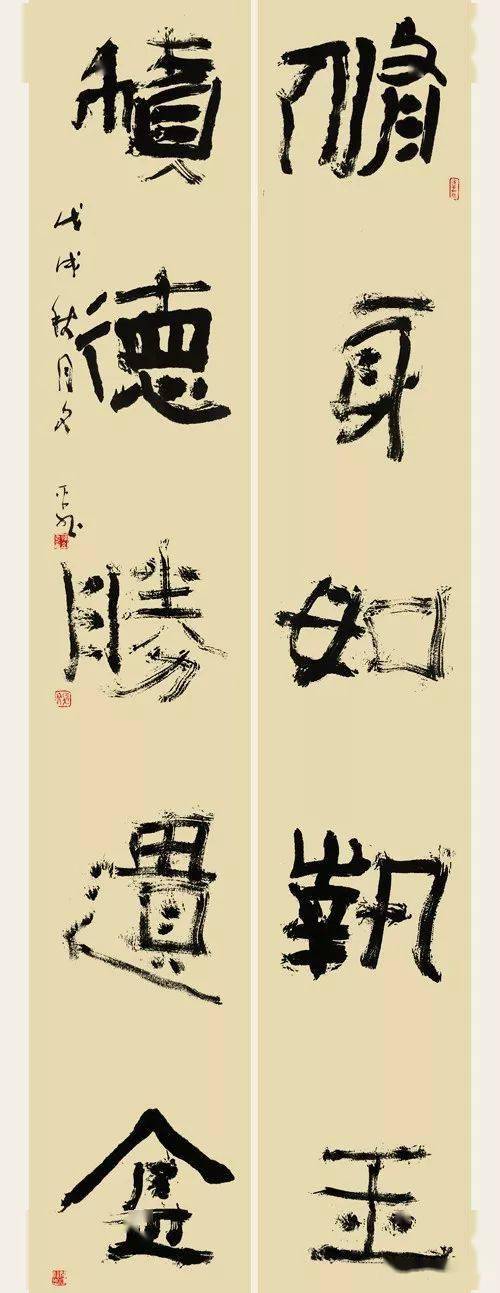 脩身如執玉
積德勝遺金
戊戌秋月